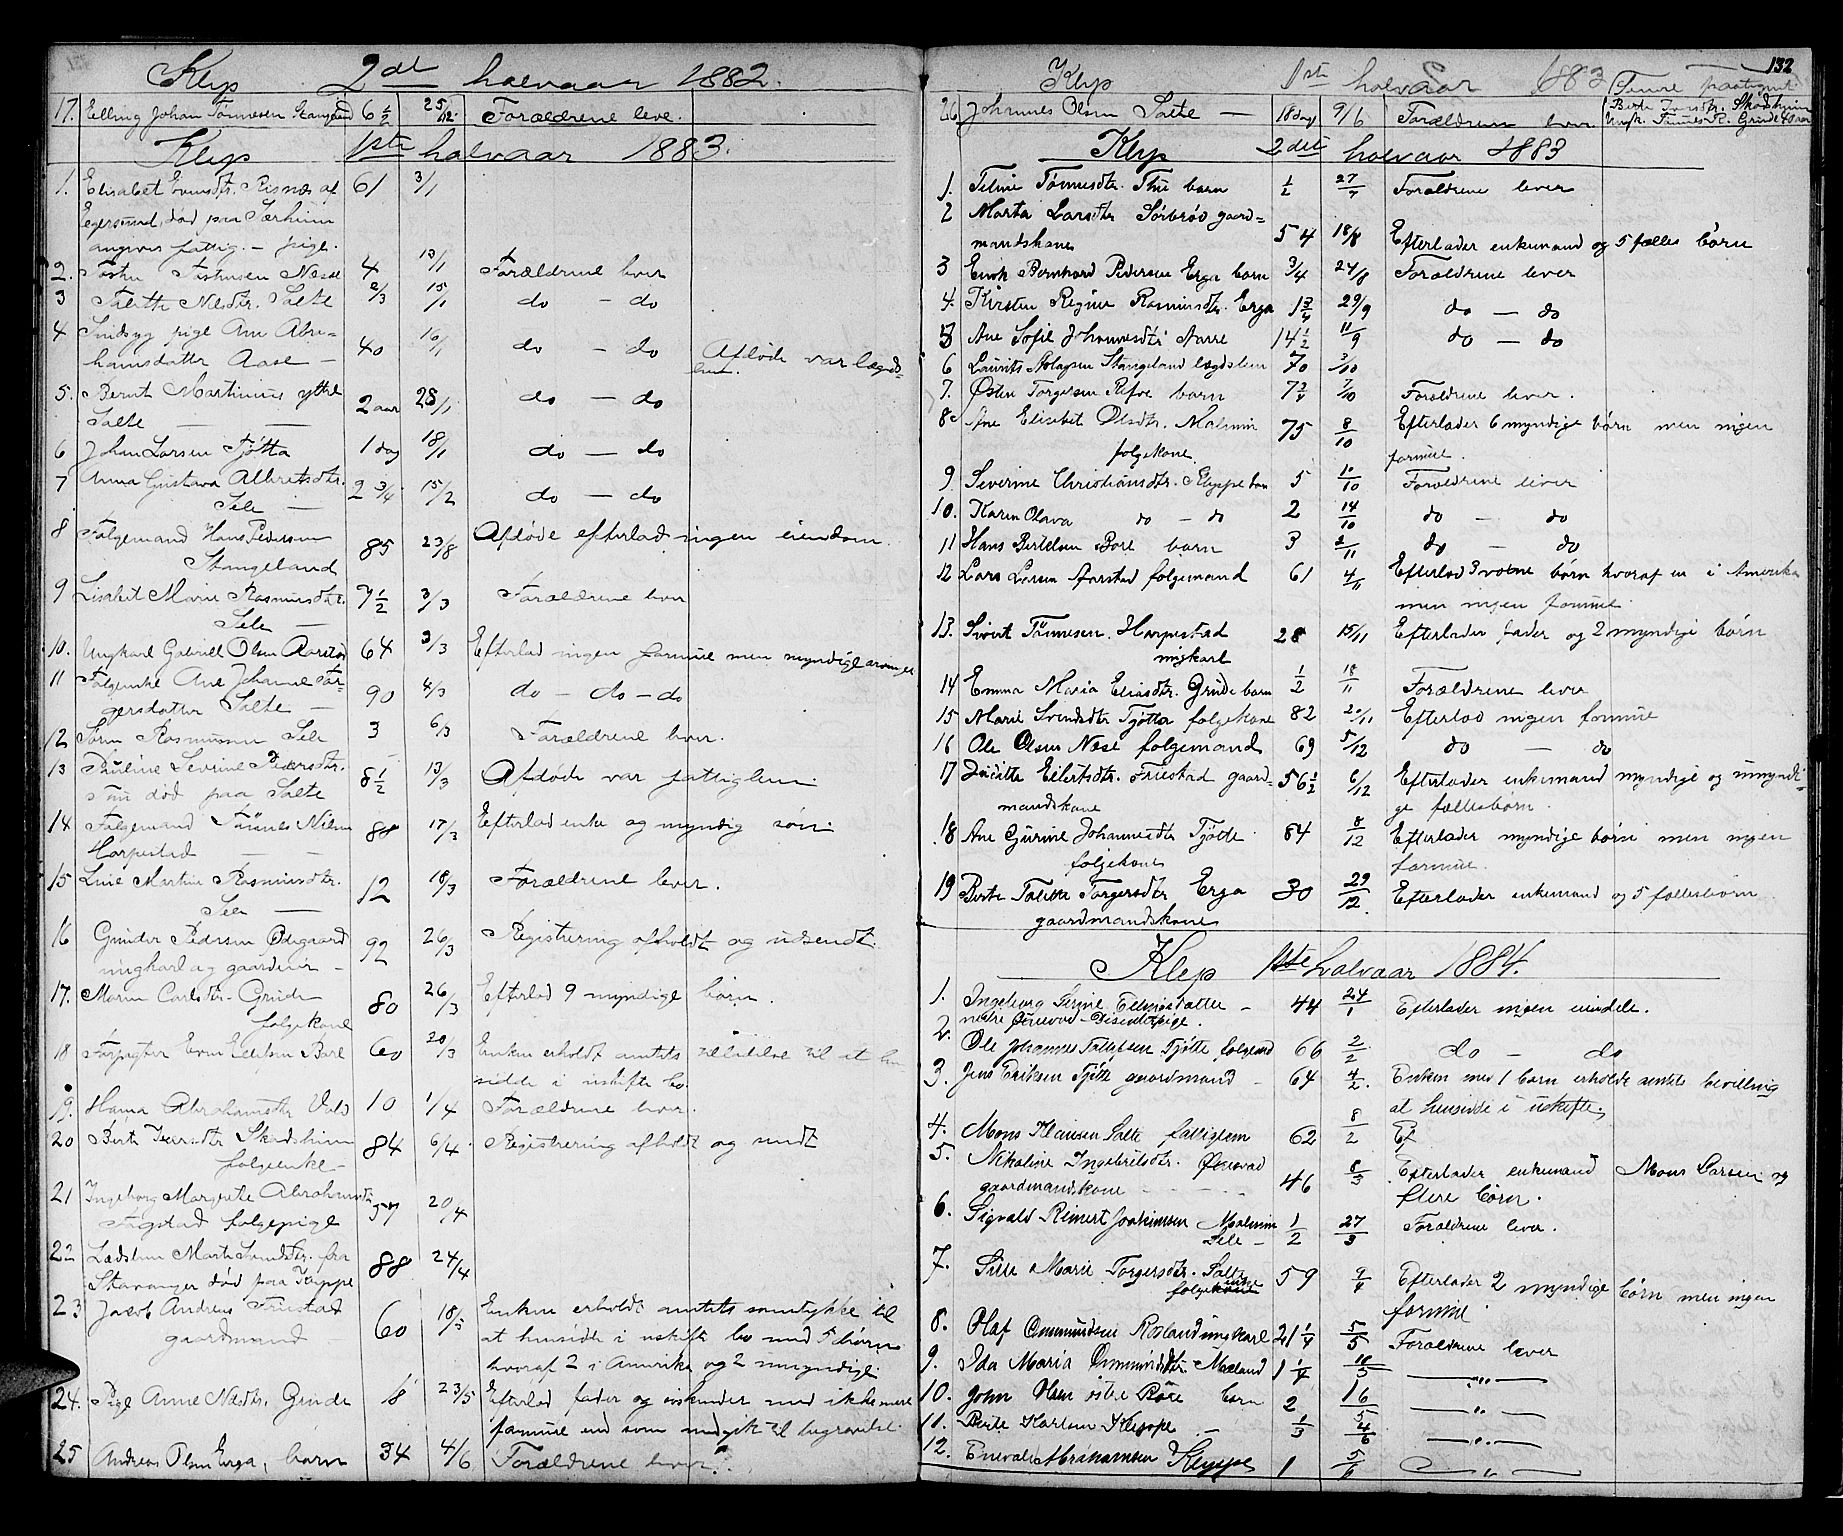 Klep 2det halvaar 1882.
17. Elling Johan Tønnesen Stangeland 6 1/2 25/12 Forældrene leve.
Klep 1ste halvaar 1883.
1. Elisabet Evensdtr. Risnes af 61 3/1
Egersund, død paa Særheim
angives fattig. — pige.
2. Nese 4 13/1 Forældrene lever
3 Talette Nilsdtr. Salte 2/3 15/1 do — do
4 Sindsyg pige Ane Abra-
hamsdatter Aase — 40 16/1 do — do Afdøde var lægds-
lem.
5. Bernt Martinius yttre
Salte — — 2 aar 28/1 do — do
6 Johan Larsen Tjøtta 1 dag 18/1 do — do
7 Anna Gustava Albretsdtr.
Sele — 2 3/4 15/2 do — do
8 Følgemand Hans Pedersen
Stangeland 85 23/8 Afdøde efterlod ingen eiendom.
9 Lisabet Marie Rasmusdtr.
Sele — 7 1/2 3/3 Forældrene lever
10. Ungkarl Gabriel Olsen Aarstad 64 3/3 Efterlod ingen formue men myndige arvinger
11 Følgenke Ane Johanne Tor-
gersdatter Salte — 90 4/3 do — do — do
12 Sørn Rasmussen Sele 3 6/3 Forældrene lever.
13 Pauline Severine Pedersdtr.
Tue død paa Salte 8 1/2 13/3 Afdøde var fattiglem.
14 Følgemand Tønnes Nilsen
Harpestad — — 88 17/3 Efterlod enke og myndig søn.
15 Line Martine Rasmusdtr.
Sele — 12 18/3 Forældrene lever.
16 Gunder Pedersen Ødegaard
ungkarl og gaardeier — 92 26/3 Registrering afholdt og udsendt.
17. Maren Carlsdtr. Grude
følgekone 80 26/3 Efterlod 9 myndige børn.
18 Forpagter Even Eilefsen Bore 60 20/3 Enken erholdt amtets tilladelse til at hen
sidde i uskifte bo.
19. Hanna Abrahamsdtr 10 1/4 Forældrene lever.
20 Berte Ivarsdtr Skadsheim
følgeenke — 84 6/4 Registrering afholdt og sendt
21 Ingeborg Margrete Abrahamsdtr
følgepige 20/4
22 Lædslem Marte Svendsdtr. fra
Stavanger død paa Kleppe 88 24/4
23 Jacob Andreas Friestad
gaardmand 60 18/5 Enken erholdt amtets samtykke til
at hensidde i uskifte bo med 5 børn
hvoraf 2 i Amerika og 2 umyndige.
24. Pige Anne Nilsdtr. Grude 18 23/5 Efterlod fader og søskender med ikke mere
formue end som medgik til begravelse.
25 Andreas Olsen Erga, barn 3/4 4/6 Forældrene lever.
132
Klep 1ste halvaar 1883
26 Johannes Olsen Salte — 18 dag 9/6 Forældrene lever
Berte Ivarsdtr. Skadsheim
Ungk. Tønnes R. Grude 40 aar
Klep 2det halvaar 1883
1. Teline Tønnesdtr. Thu barn 1/2 27/7 Forældrene lever
2 Marta Larsdtr Sørbrød gaard-
mandskone 54 18/8 Efterlader enkemand og 5 fælles børn
3 Enok Bernhard Pedersen Erga barn 3/4 24/8 Forældrene lever
4. Kirsten Regine Rasmusdtr. Erga 1 3/4 29/9 do — do
5 Ane Sofie Johannesdtr. Aarre 14 1/2 11/9 do — do
6 Laurits Aslagsen Stangeland lægdslem 70 3/10
7. Østen Torgersen Refve barn 7/10 Forældrene lever.
8. Ane Elisabet Olsdtr. Malmin
følgekone. 75 8/10 Efterlader 6 myndige børn men ingen
formue.
9. Severine Christiansdtr. Kleppe barn 5 10/10 Forældrene lever
10. Karen Olava do — do 2 14/10 do — do
11 Hans Bertelsen Bore barn 3 2/11 do — do
12 Lars Larsen Aarstad følgemand 61 4/11 Efterlod 3 voksne børn hvoraf en i Amerika
men ingen formue.
13. Sivert Tønnesen Harpestad
ungkarl 28 15/11 Efterlader fader og 2 myndige børn
14 Emma Maria Eliasdtr. Grude barn 1/2 18/11 Forældrene lever
15 Marie Svendsdtr Tjøtta følgekone 82 20/11 Efterlod ingen formue
16 Ole Olsen Nese følgemand 69 5/12 do — do
17 Eilertsdtr. Friestad gaard-
mandskone 56 1/2 6/12 Efterlader enkemand myndige og umyndi-
ge fællesbørn.
18 Ane Gurine Johannesdtr Tjøtte
følgekone 84 8/12 Efterlader myndige børn men ingen
formue.
19 Berte Talette Torgersdtr Erga
gaardmandskone 30 29/12. Efterlader enkemand og 5 fællesbørn
Klep 1ste halvaar 1884.
1. Ingeborg Serine Tønnesdatter —
nedre Øxnevad — Disenterpige. 44 24/1 Efterlader ingen eiendele.
2. Ole Johannes Tollefsen Tjøtte følgemand 66 2/2 do — do
3. Jens Eriksen Tjøtte gaardmand — 64 4/2. Enken med 1 barn erholdt amtets bevilling
at hensidde i uskifte.
4. Mons Klausen Salte fattiglem 62 8/2 Ef
5. Nikoline Ingebretsdtr. Øxnevad
gaardmandskone — — 46 8/3 Efterlader enkemand Mons Larsen og
flere børn.
6. Sigvald Reinert Joakimsen Malmin
Sele — 1/2 27/3 Forældrene lever.
7. Sille Marie Torgersdtr. Salte
enke
følgekone 59 9/4 Efterlader 2 myndige børn men ingen
formue.
8. Olaf Ommundsen Rosland ungkarl 21 1/4 5/5 Forældrene lever
9. Ida Maria Ommundsdtr. Mæland 1 1/4 10/5 — „ —
10. John Olsen østre Bore barn 2 16/5 — „ —
11. Berte Karlsen Kleppe — 1/3 4/6 — „ —
12. Enevald Abrahamsen Kleppe 1 5/6 — „ —